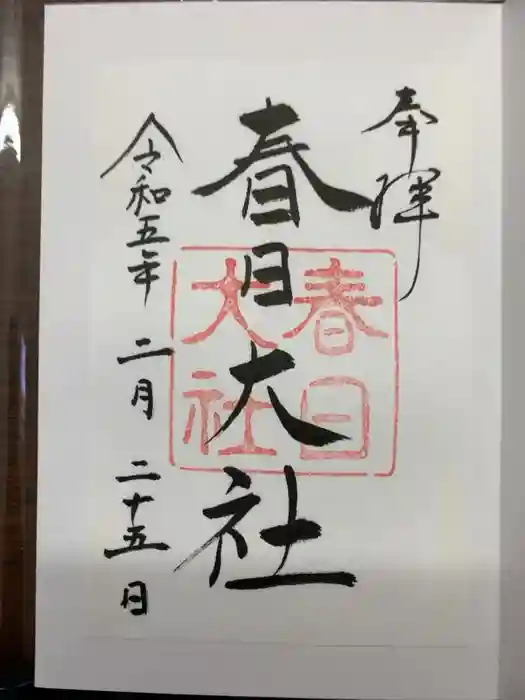 奉拝
春日大社
春日
大社
令和五年 二月 二十五日